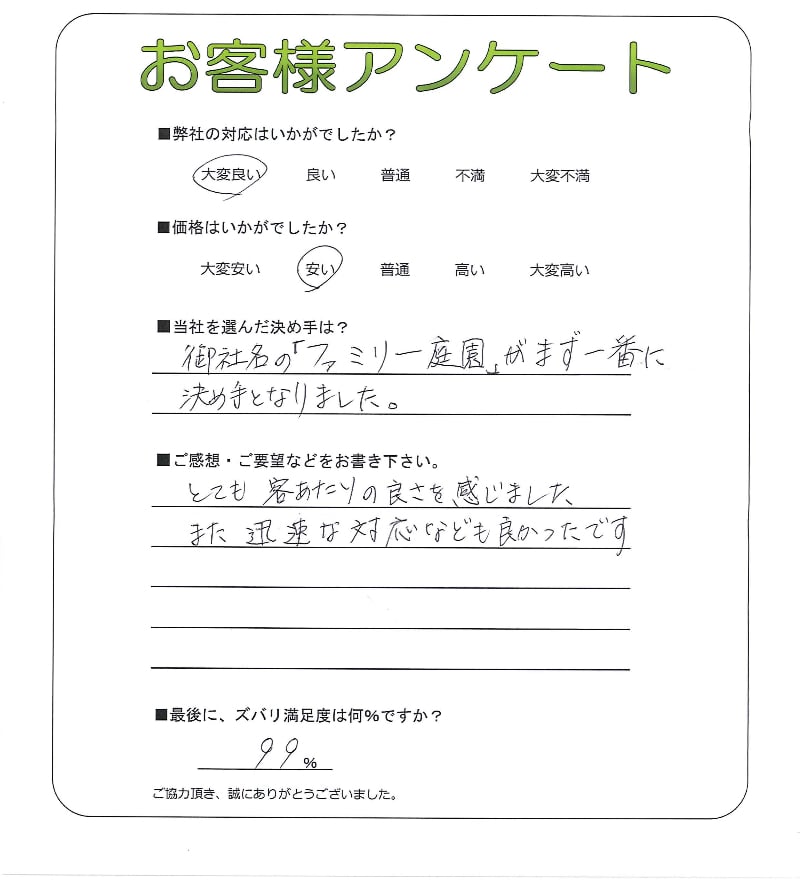 お客様アンケート
■弊社の対応はいかがでしたか？
大変良い 良い 普通 不満 大変不満
■価格はいかがでしたか？
大変安い 安い 普通 高い 大変高い
■当社を選んだ決め手は？
御社名の「ファミリー庭園」がまず一番に
決め手となりました。
■ご感想・ご要望などをお書き下さい。
とても 客あたりの良さを感じました、
また 迅速な対応なども良かったです
■最後に、ズバリ満足度は何％ですか？
99％
ご協力頂き、誠にありがとうございました。